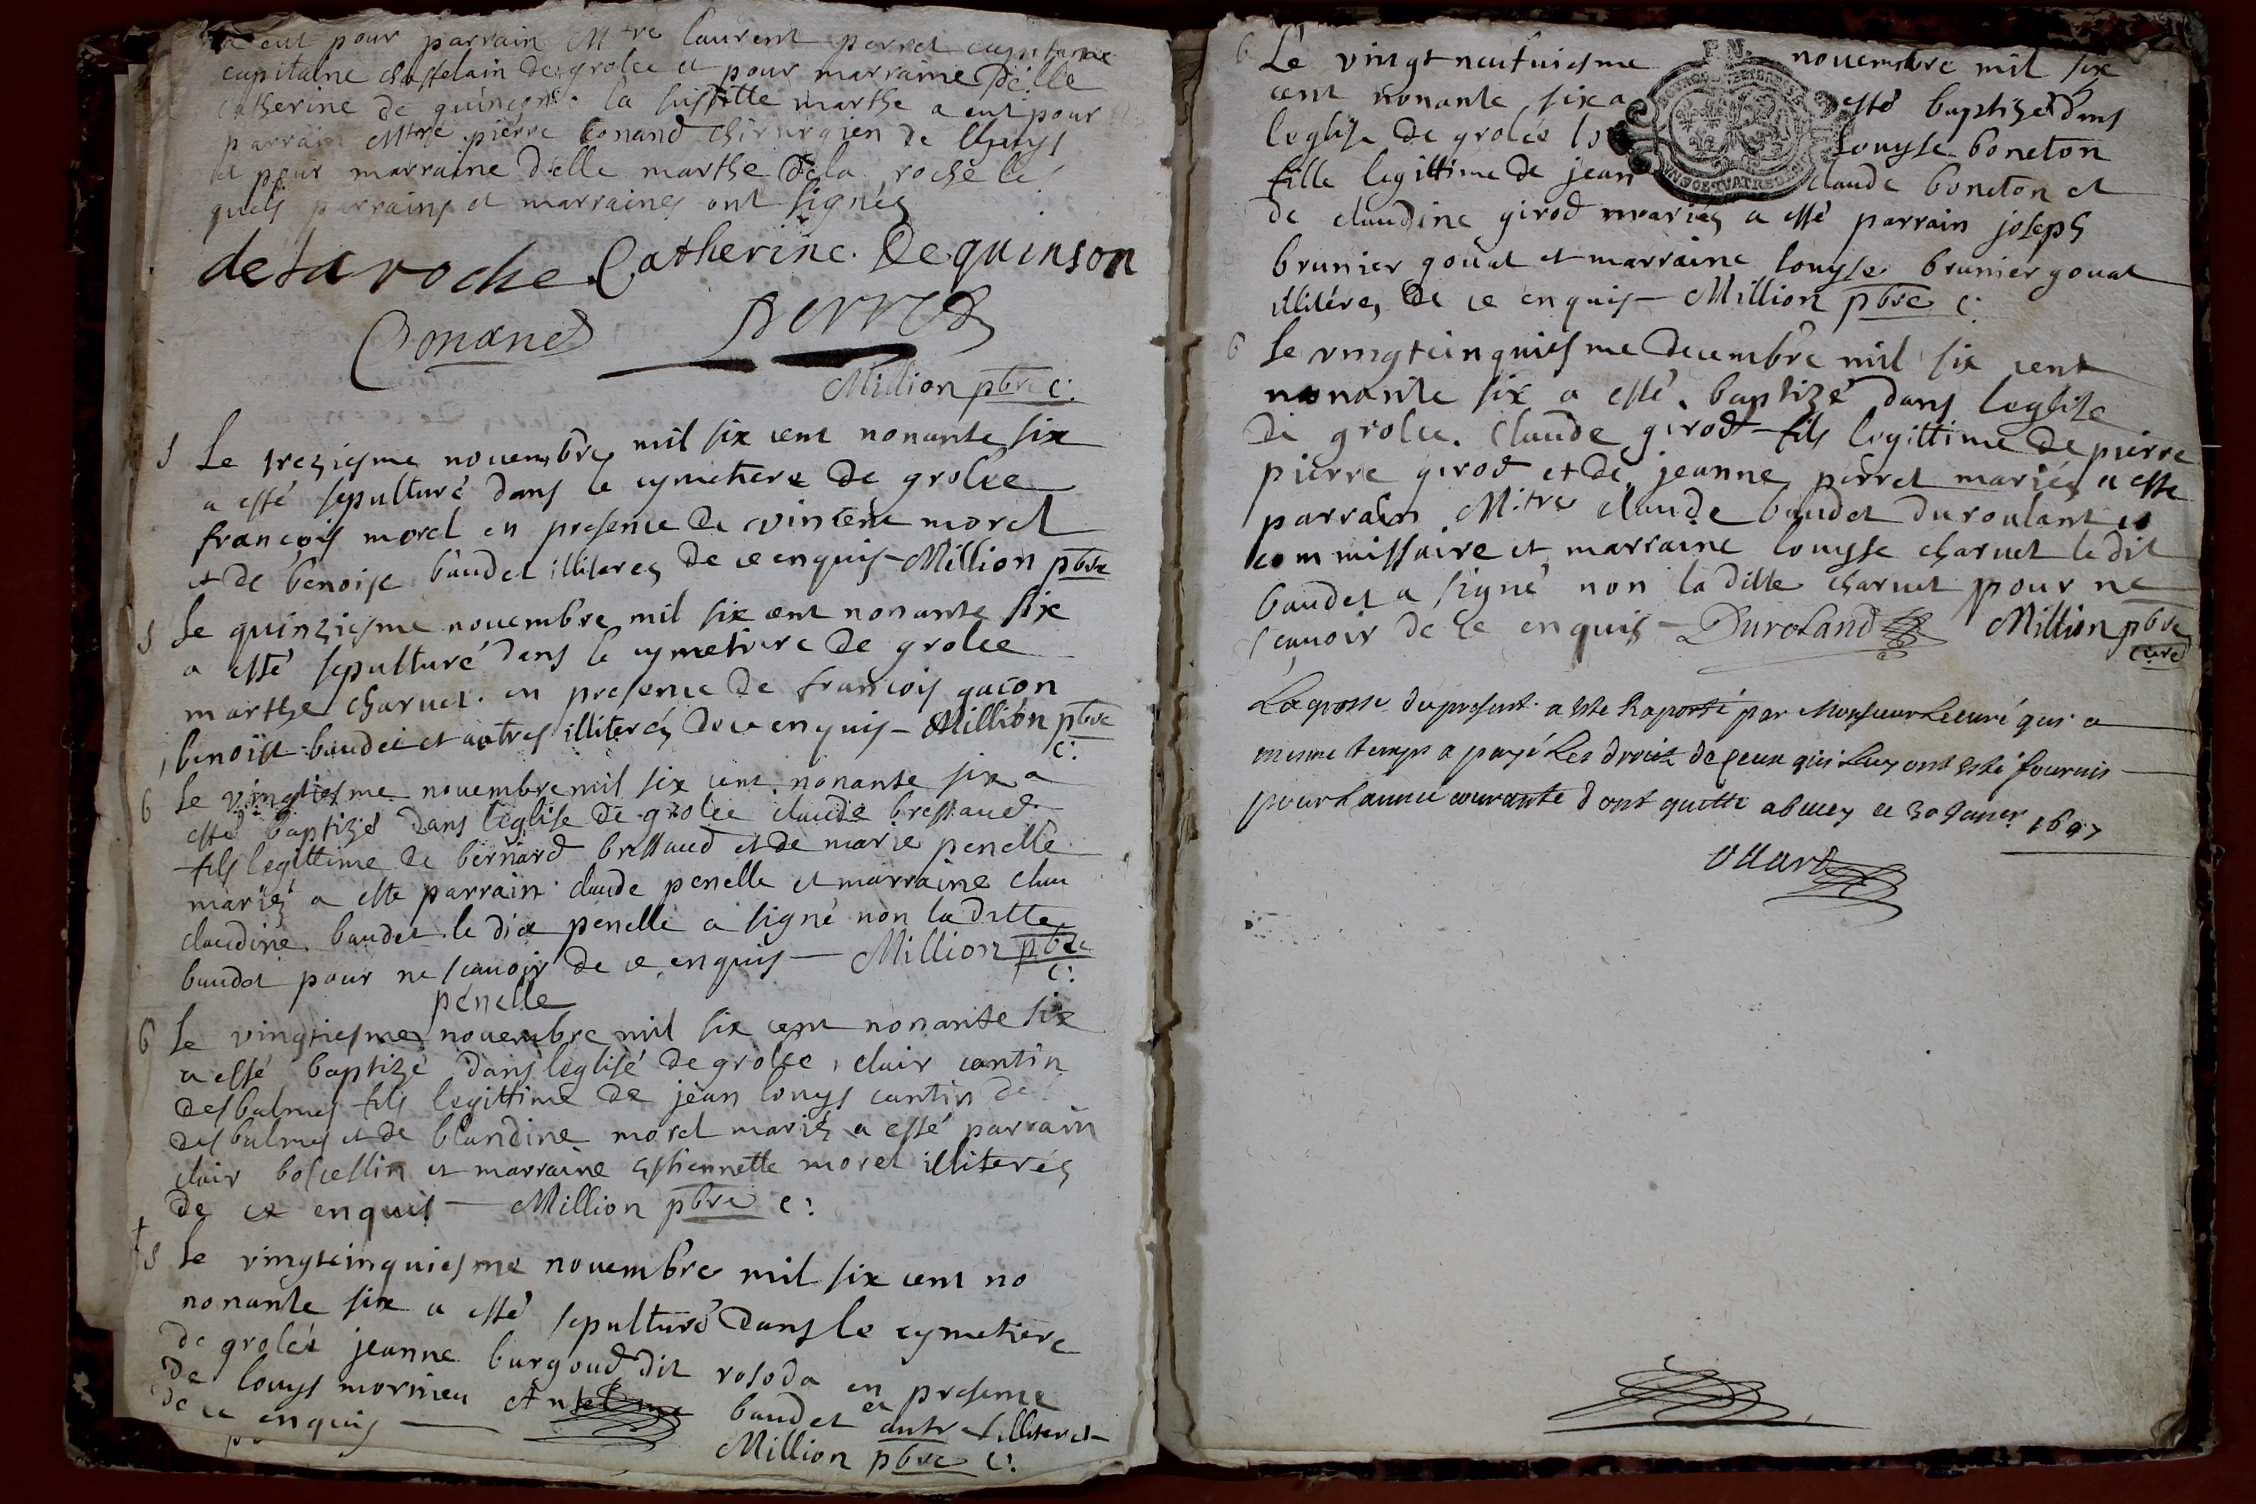 a eut pour parrain Mtre laurent perret capitaine
capitaine chastelain de grolee et pour marraine delle
Catherine de quincon. la susditte marthe a eut pour
parrain Mtre pierre conand chirurgien de
et pour marraine delle marthe dela roche les
quels parrains et marraines ont signés
delaroche Catherine. De quinson
Conand perret
Million pbre c:
S Le treziesme novembre mil six cent nonante six
a esté sepulturé dans le cymetiere de grolee
françois morel en presence de vincent morel
et de benoise baudet illiterés de ce enquis – Million pbre
S Le quinziesme novembre mil six cent nonante six
a esté sepulturé dans le cymetiere de grolee
marthe charvet. en presence de francois gacon
benoist baudet et autres illiterés de ce enquis – Million pbre
c:
6 Le vingtiesme novembre mil six cent nonante six a
esté baptizé dans leglise de grolee claude bressaud
fils legittime de bernard bressaud et de marie penelle
mariés a esté parrain claude penelle et marraine clau
claudine baudet le dict penelle a signé non la ditte
baudet pour ne scavoir de ce enquis – Million pbre
c:
penelle
6 Le vingtiesme novembre mil six cent nonante six
a esté baptizé dans leglise de grolee, clair cantin
desbalmes fils legittime de jean louys cantin de
desbalmes et de blandine morel mariés a esté parrain
clair boscessin et marraine estiennette morel illiterés
de ce enquis – Million pbre c:
† S Le vingtcinquiesme novembre mil six cent no
nonante six a esté sepulturé dans le cymetiere
de grolée jeanne burgoud dit rosoda en presence
de louys morineu baudet et autres illiterés
de ce enquis – Million pbre c:
6 Le vingt neufuiesme novembre mil six
cent nonante six a esté baptizé dans
leglise de grolée louyse boneton
fille legittime de jean claude boneton et
de claudine girod mariés a esté parrain joseph
brunier gouat et marraine louyse brunier gouat
illiterés de ce enquis – Million pbre c:
6 Le vingtcinquiesme decembre mil six cent
nonante six a esté. baptizé dans leglise
de grolee. Claude girod fils legittime de pierre
pierre girod et de jeanne perret mariés a esté
parrain Mitre claude baudet duroulant et
commissaire et marraine louyse charvet le dit
baudet a signé non la ditte charvet pour ne
scavoir de ce enquis – Duroland Million pbre
curé
La grosse du present a esté Raporté par Monsieur Le curé qui a
mesme temps a payé Les droitz de ceux qui Luy ont esté fournis
pour Lannee courante dont quitte a belley ce 30 Janer 1697